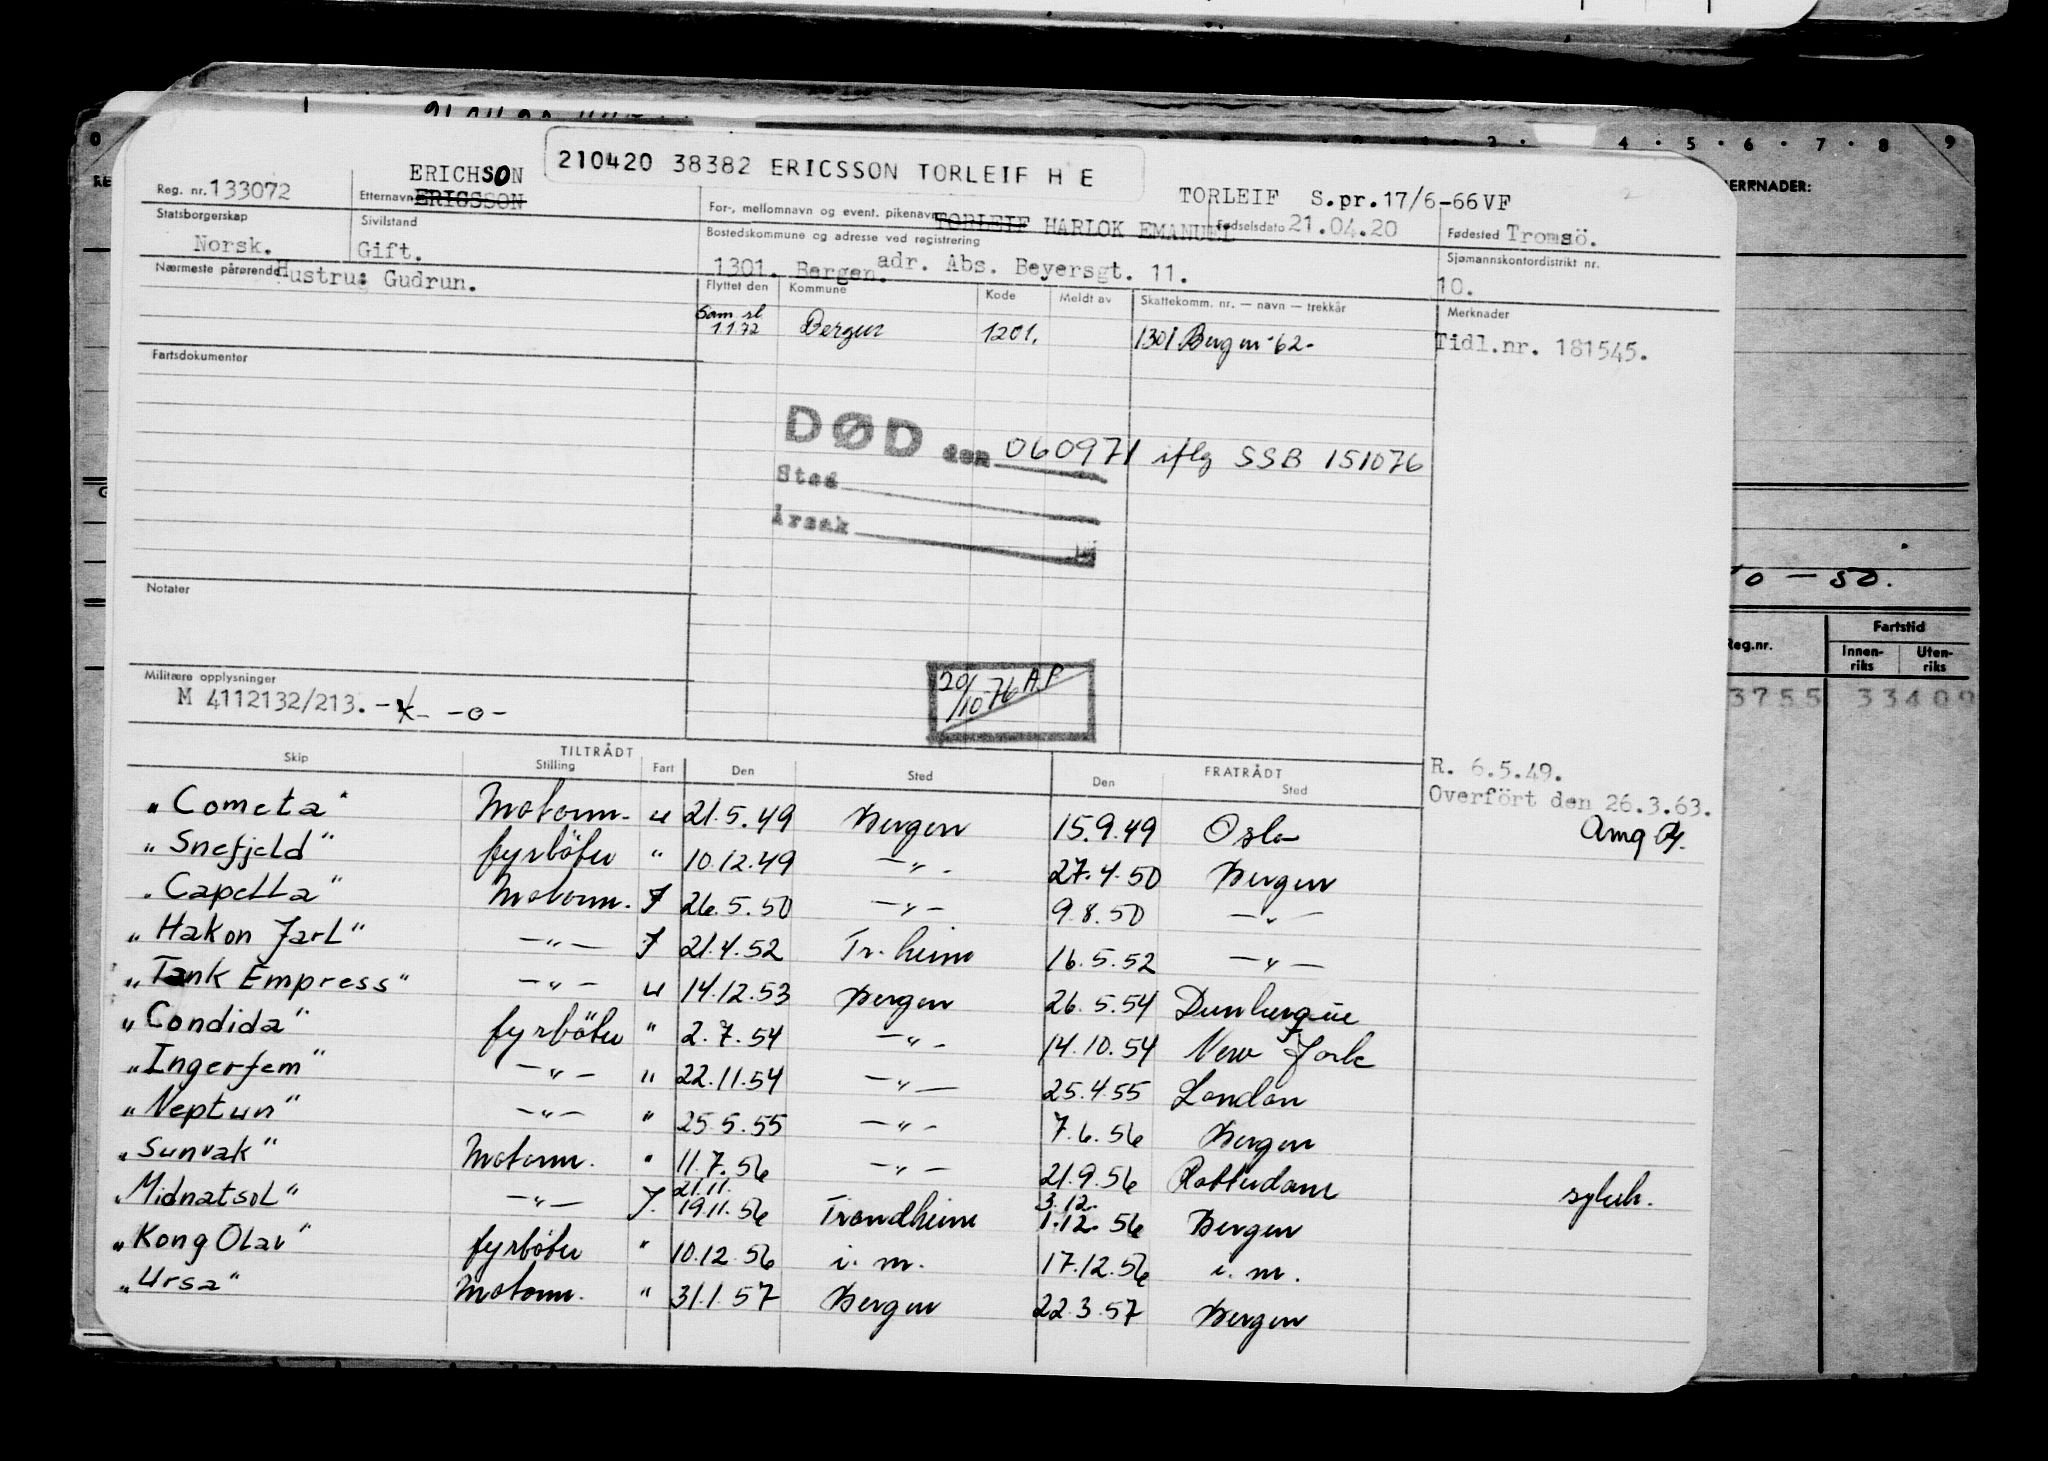 210420 38382 ERICSSON TORLEIF H E
Reg. nr. 133072
Etternavn ERICHSON ERICSSON
For-, mellomnavn og event. pikenavn TORLEIF HARLOK EMANUEL
TORLEIF S.pr.17/6-66VF
Fødselsdato 21.04.20
Fødested Tromsö.
Statsborgerskap Norsk.
Sivilstand Gift.
Bostedskommune og adresse ved registrering
1301. Bergen. adr. Abs. Beyersgt. 11.
Sjømannskontordistrikt nr.
10.
Nærmeste pårørende Hustru: Gudrun.
Flyttet den Kommune Kode Meldt av Skattekomm. nr. — navn — trekkår
Sam sl
1.1.72 Bergen 1201. 1301 Bergen -62-
Merknader
Tidl.nr. 181545.
Fartsdokumenter
DØD den 060971 iflg SSB 151076
Sted
Årsak
Notater
Militære opplysninger
M 4112132/213. - -o-
20/10-76 A.P
TILTRÅDT FRATRÅDT
Skip Stilling Fart Den Sted Den Sted
R. 6.5.49.
Overfört den 26.3.63.
"Cometa" Motorm. u 21.5.49 Bergen 15.9.49 Oslo
"Snefjeld" fyrböter " 10.12.49 —"- 27.4.50 Bergen
"Capella" Motorm. J 26.5.50 —"— 9.8.50 —"—
"Hakon Jarl" —"— J 21.4.52 Tr.heim 16.5.52 —"—
"Tank Empress" —"— u 14.12.53 Bergen 26.5.54 Dunkerque
"Condida" fyrböter " 2.7.54 —"- 14.10.54 New York
"Ingerfem" —"— " 22.11.54 —"— 25.4.55 London
"Neptun" —"— " 25.5.55 —"- 7.6.56 Bergen
"Sunvak" Motorm. " 11.7.56 —"— 21.9.56 Rotterdam sykeh.
"Midnatsol" —"— J. 21.11. 19.11.56 Trondheim 3.12. 1.12.56 Bergen
"Kong Olav" fyrböter " 10.12.56 i.m. 17.12.56 i.m.
"Ursa" Motorm. " 31.1.57 Bergen 22.3.57 Bergen
ERRNADER:
4 · 5 · 6 · 7 · 8 9
0 — 50.
Reg.nr. Fartstid
Innen-riks Uten-riks
3755 33409